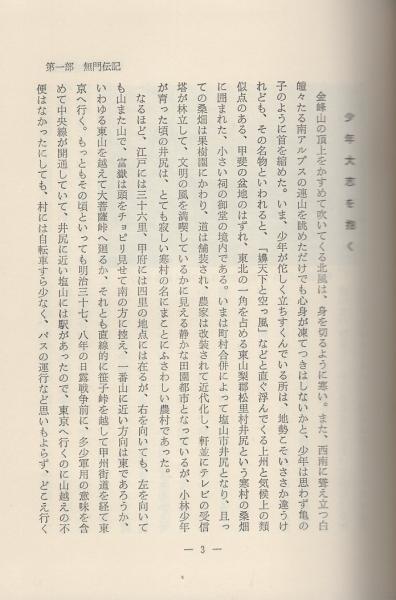 第一部　無門伝記
少年大志を抱く
金峰山の頂上をかすめて吹いてくる北風は、身を切るように寒い。また、西南に聳え立つ白
皚々たる南アルプスの連山を眺めただけでも心身が凍てつきはしないかと、少年は思わず亀の
子のように首を縮めた。いま、少年が佗しく立ちすくんでいる所は、地勢こそいささか違うけ
れども、その名物といわれると、「嬶天下と空っ風」などと直ぐ浮んでくる上州と気候上の類
似点のある、甲斐の盆地のはずれ、東北の一角を占める東山梨郡松里村井尻という寒村の桑畑
に囲まれた、小さい祠の御堂の境内である。いまは町村合併によって塩山市井尻となり、且っ
ての桑畑は果樹園にかわり、道は舗装され、農家は改装されて近代化し、軒並にテレビの受信
塔が林立して、文明の風を満喫しているかに見える静かな田園都市となっているが、小林少年
が育った頃の井尻は、とても寂しい寒村の名にまことにふさわしい農村であった。
なるほど、江戸には三十六里、甲府には四里の地点には在るが、右を向いても、左を向いて
も山また山で、富嶽は頭をチョピリ見せて南の方に控え、一番山に近い方向は東であろうか、
いわゆる東山を越えて大菩薩峠へ廻るか、それとも直線的に笹子峠を越して甲州街道を経て東
京へ行く。もっともその頃といっても明治三十七、八年の日露戦争前に、多少軍用の意味を含
めて中央線が開通していて、井尻に近い塩山には駅があったので、東京へ行くのに山越えの不
便はなかったにしても、村には自転車すら少なく、バスの運行など思いもよらず、どこえ行く
— 3 —